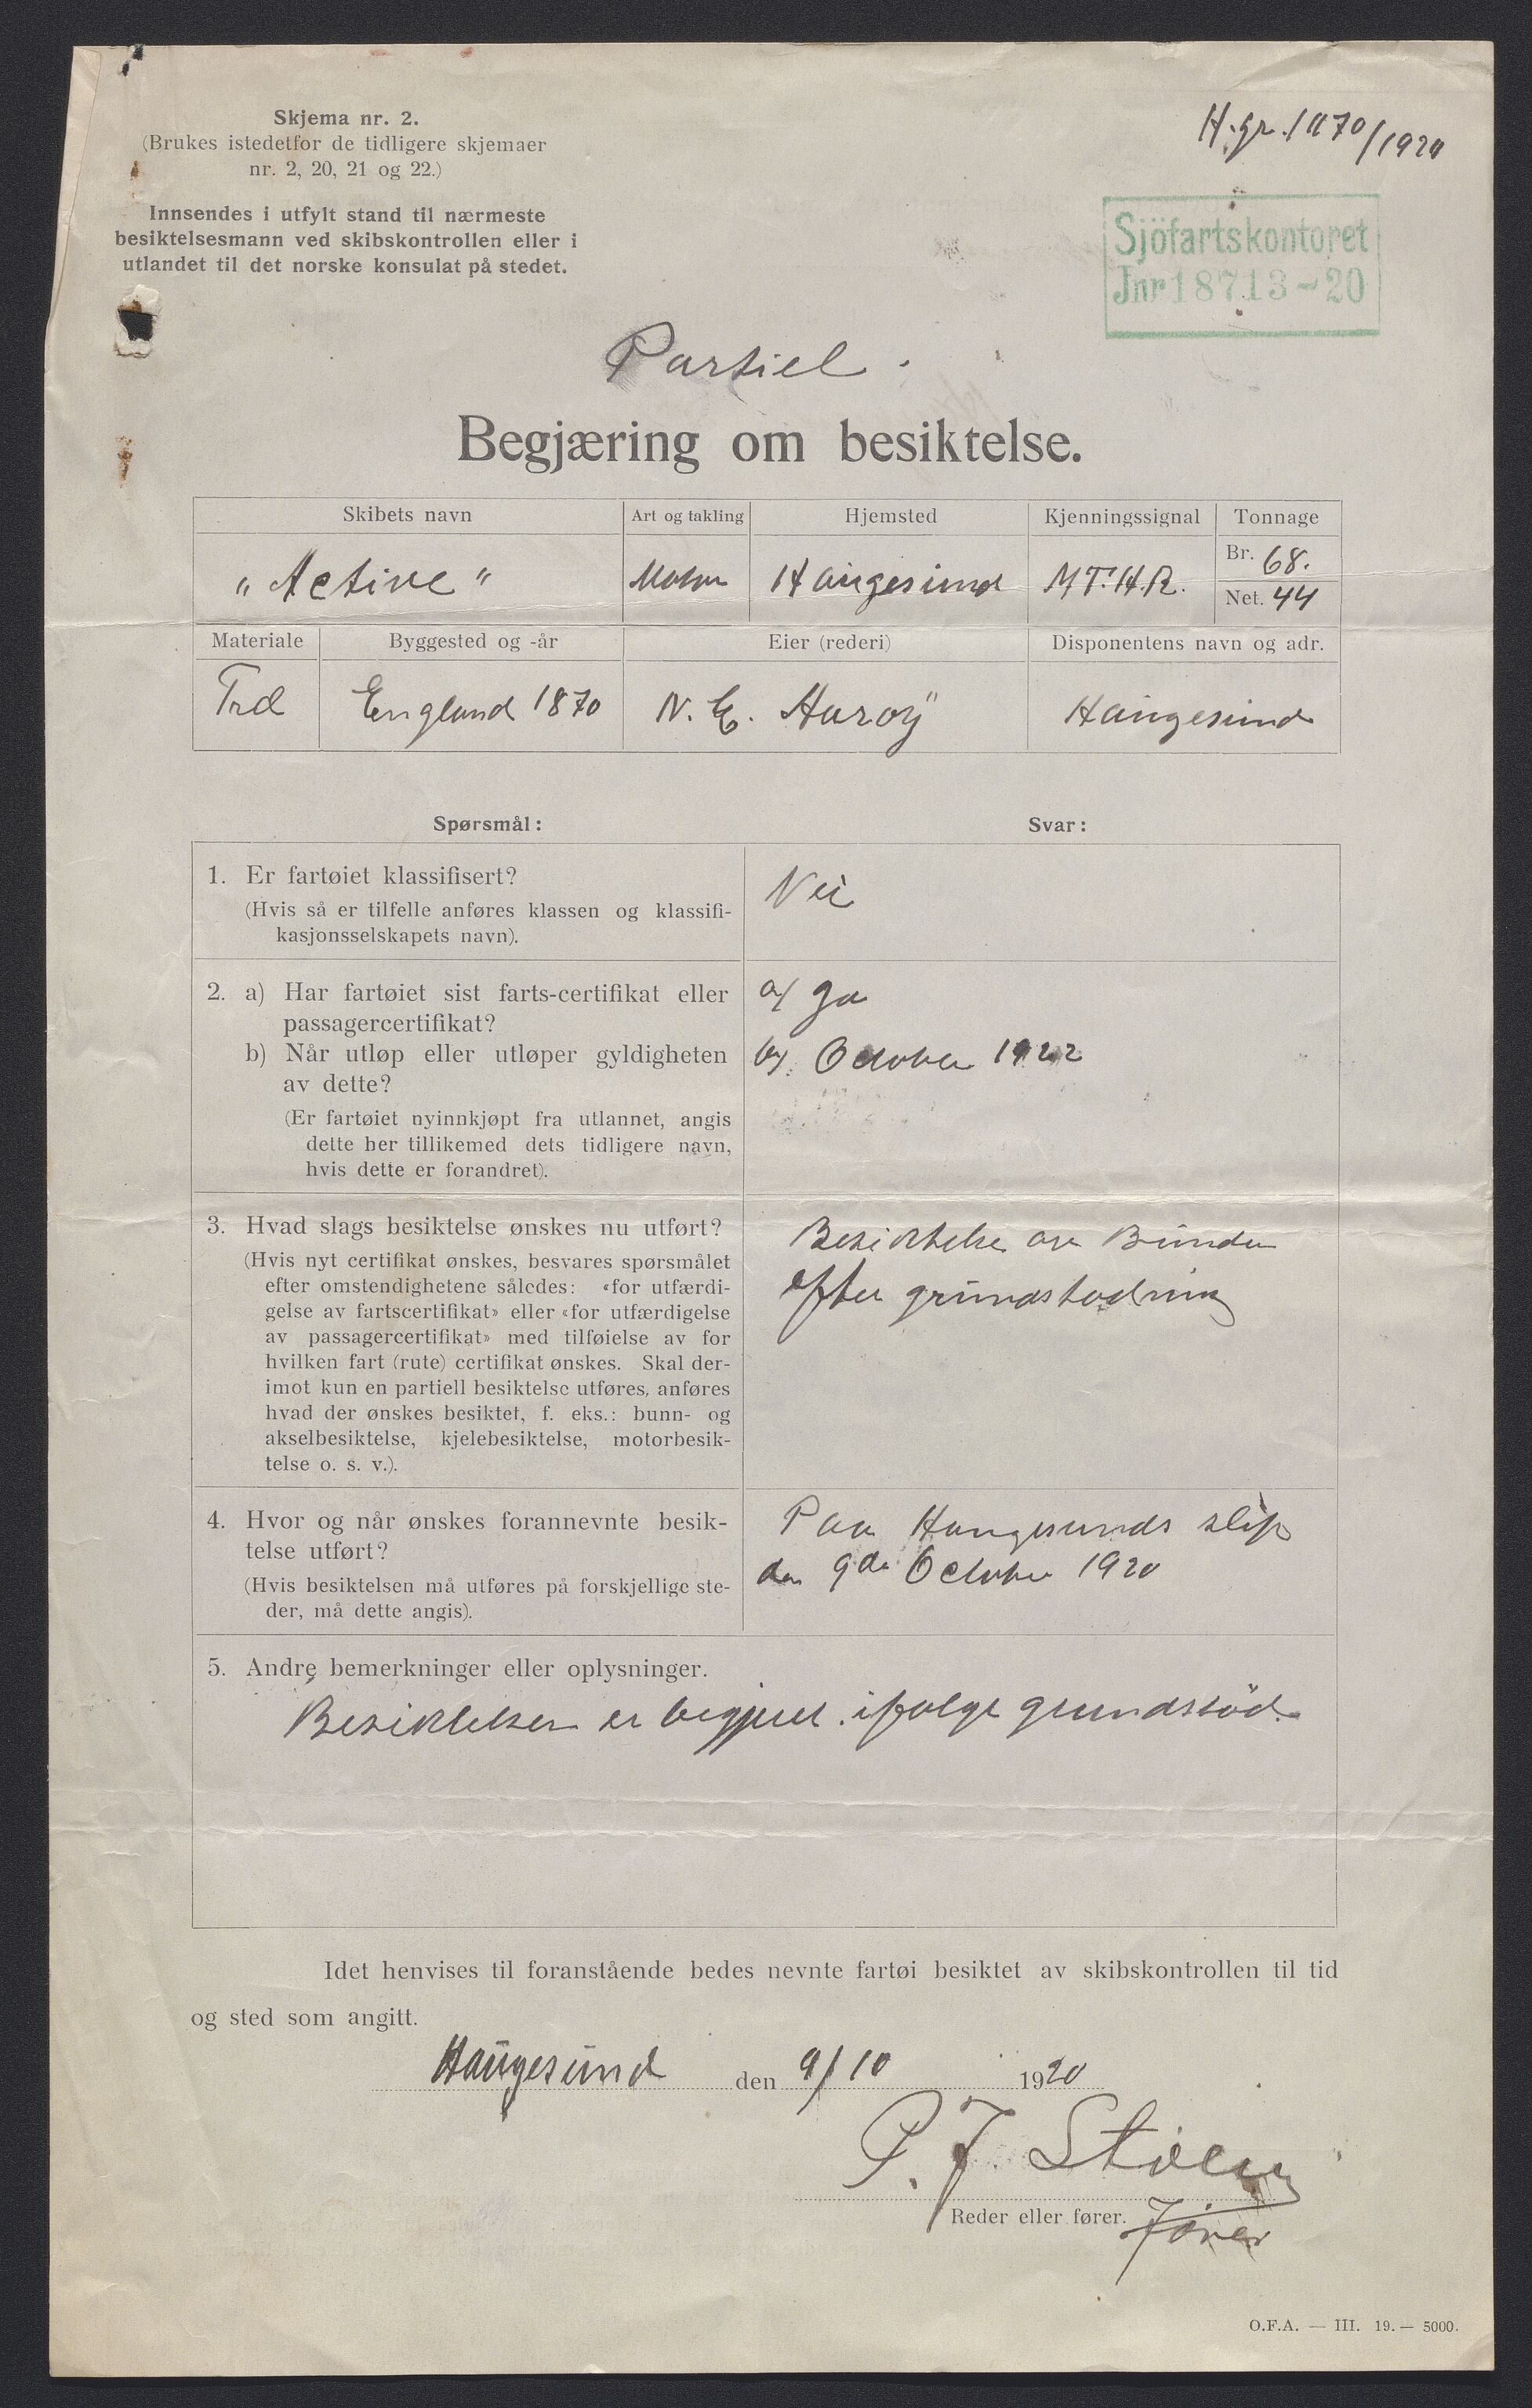 Skjema nr. 2.
(Brukes istedetfor de tidligere skjemaer
nr. 2, 20, 21 og 22.)
Innsendes i utfylt stand til nærmeste
besiktelsesmann ved skibskontrollen eller i
utlandet til det norske konsulat på stedet.
H.gr. 1070/1920
Sjöfartskontoret
Jnr 18713-20
Partiel.
Begjæring om besiktelse.
Skibets navn Art og takling Hjemsted Kjenningssignal Tonnage
"Active" Motor Haugesund M.T.H.R. Br. 68.
Net. 44
Materiale Byggested og -år Eier (rederi) Disponentens navn og adr.
Træ England 1870 N. E. Haugesund
Spørsmål: Svar:
1. Er fartøiet klassifisert?
(Hvis så er tilfelle anføres klassen og klassifi-
kasjonsselskapets navn).
Nei
2. a) Har fartøiet sist farts-certifikat eller
passagercertifikat?
b) Når utløp eller utløper gyldigheten
av dette?
(Er fartøiet nyinnkjøpt fra utlannet, angis
dette her tillikemed dets tidligere navn,
hvis dette er forandret).
a/ Ja
b/ October 1922
3. Hvad slags besiktelse ønskes nu utført?
(Hvis nyt certifikat ønskes, besvares spørsmålet
efter omstendighetene således: «for utfærdi-
gelse av fartscertifikat» eller «for utfærdigelse
av passagercertifikat» med tilføielse av for
hvilken fart (rute) certifikat ønskes. Skal der-
imot kun en partiell besiktelse utføres, anføres
hvad der ønskes besiktet, f. eks.: bunn- og
akselbesiktelse, kjelebesiktelse, motorbesik-
telse o. s. v.).
Besiktelse av Bunden
efter grundstødning
4. Hvor og når ønskes forannevnte besik-
telse utført?
(Hvis besiktelsen må utføres på forskjellige ste-
der, må dette angis).
Paa Haugesunds slip
den 9de October 1920
5. Andre bemerkninger eller oplysninger.
Besiktelsen er begjært ifølge grundstöd.
Idet henvises til foranstående bedes nevnte fartøi besiktet av skibskontrollen til tid
og sted som angitt.
Haugesund den 9/10 1920
P. J.
Reder eller fører. Fører
O.F.A. — III. 19. — 5000.